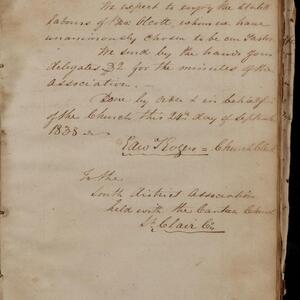 We expect to enjoy the stated
labours of Bro Olcott, whom we have
unanimously chosen to be our Pastor
We send by the hands of our
delegates $2 for the minutes of the
association.
Done by order & in behalf
of the Church this 24th day of September
1838
Edwd Roger = Church Clk
To the
South district Association
held with the Canteen Church
St Clair Co,